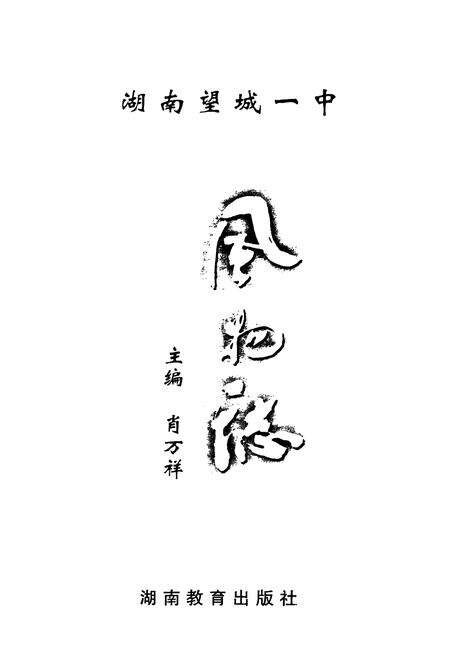 湖南望城一中
风
主编 肖万祥
湖南教育出版社